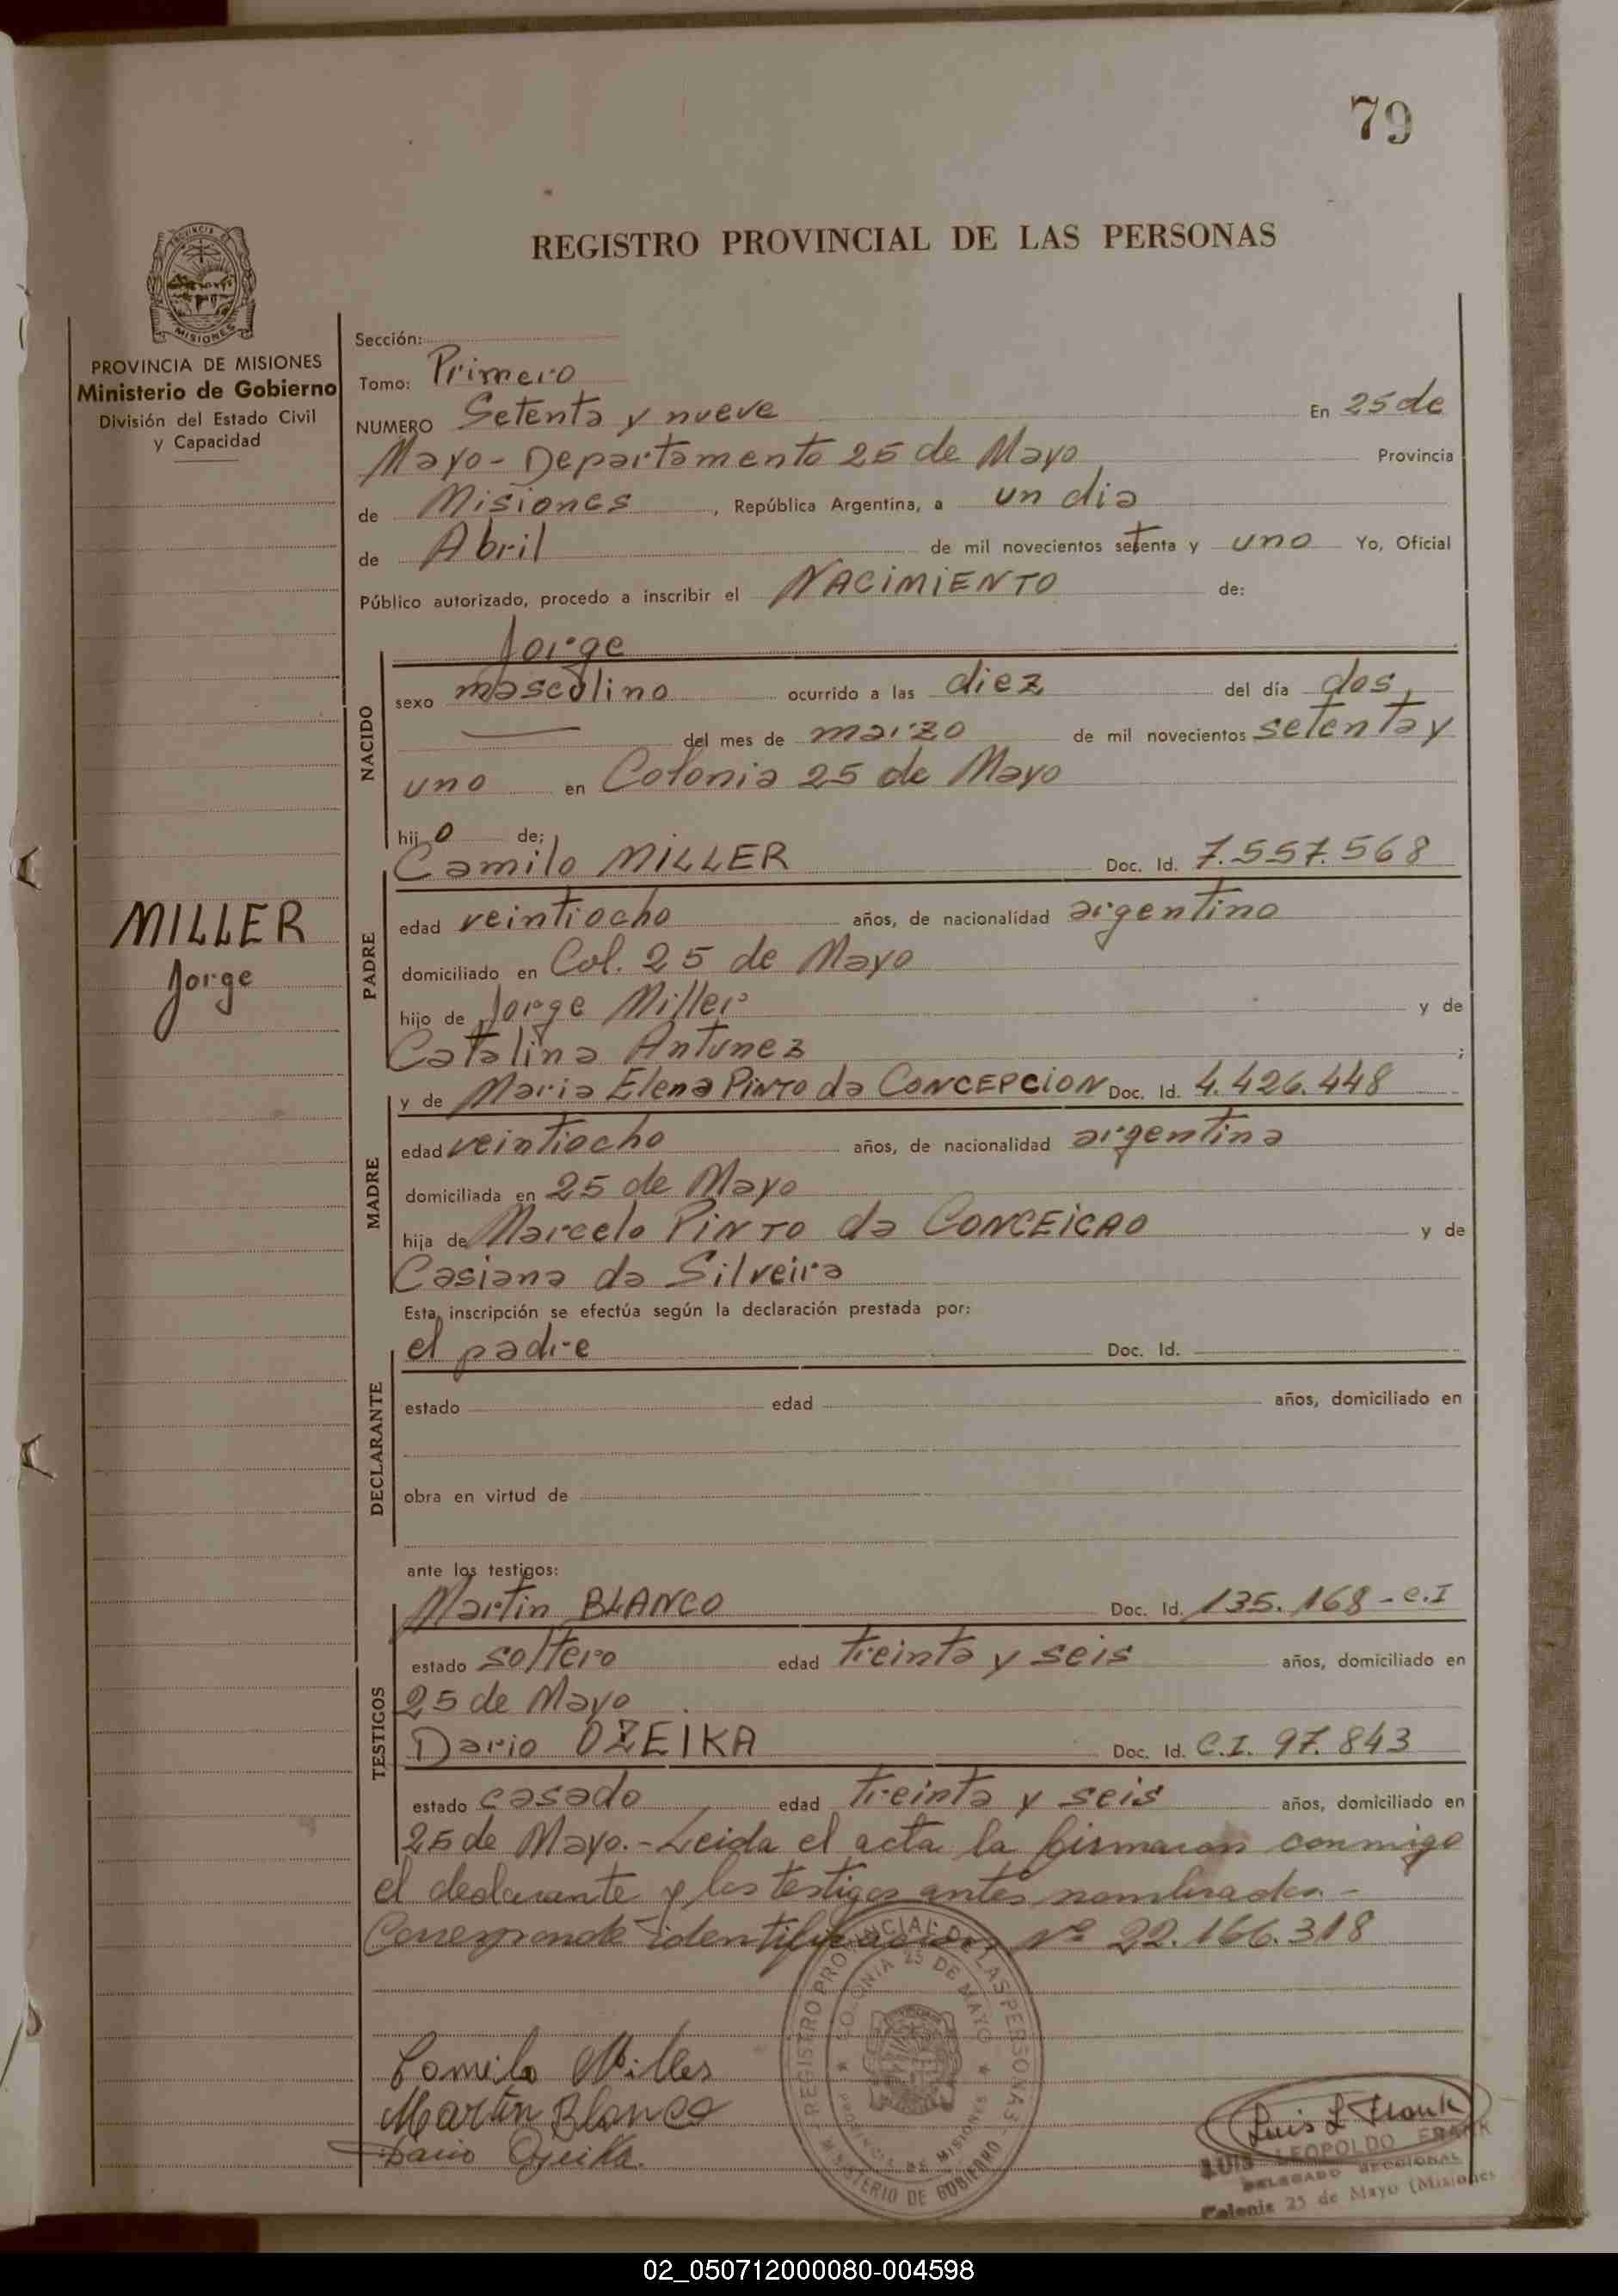 79
REGISTRO PROVINCIAL DE LAS PERSONAS
PROVINCIA DE MISIONES
PROVINCIA DE MISIONES
Ministerio de Gobierno
División del Estado Civil
y Capacidad
MILLER
Jorge
Sección:
Tomo: Primero
NUMERO Setenta y nueve En 25 de
Mayo - Departamento 25 de Mayo Provincia
de Misiones, República Argentina, a un dia
de Abril de mil novecientos setenta y uno Yo, Oficial
Público autorizado, procedo a inscribir el NACIMIENTO de:
NACIDO
Jorge
sexo masculino ocurrido a las diez del día dos,
del mes de marzo de mil novecientos setenta y
uno en Colonia 25 de Mayo
hijo de;
PADRE
Camilo MILLER Doc. Id. 7.557.568
edad veintiocho años, de nacionalidad argentino
domiciliado en Col. 25 de Mayo
hijo de Jorge Miller y de
Catalina Antunez ;
MADRE
y de Maria Elena PINTO da CONCEPCION Doc. Id. 4.426.448
edad veintiocho años, de nacionalidad argentina
domiciliada en 25 de Mayo
hija de Marcelo PINTO da CONCEICAO y de
Casiana da Silveira
Esta inscripción se efectúa según la declaración prestada por:
DECLARANTE
el padre Doc. Id.
estado edad años, domiciliado en
obra en virtud de
ante los testigos:
TESTIGOS
Martin BLANCO Doc. Id. 135.168 - C.I
estado soltero edad treinta y seis años, domiciliado en
25 de Mayo
Dario OZEIKA Doc. Id. C.I. 97.843
estado casado edad treinta y seis años, domiciliado en
25 de Mayo. - Leida el acta la firmaron conmigo
el declarante y los testigos antes nombrados. -
Corresponde identificación Nº 22.166.318
REGISTRO PROVINCIAL DE LAS PERSONAS
COLONIA 25 DE MAYO
PROVINCIA DE MISIONES
MINISTERIO DE GOBIERNO
Camilo Miller
Martin Blanco
Dario Ozeika.
Luis L Frank
LUIS LEOPOLDO FRANK
DELEGADO SECCIONAL
Colonia 25 de Mayo (Misiones
02_050712000080-004598